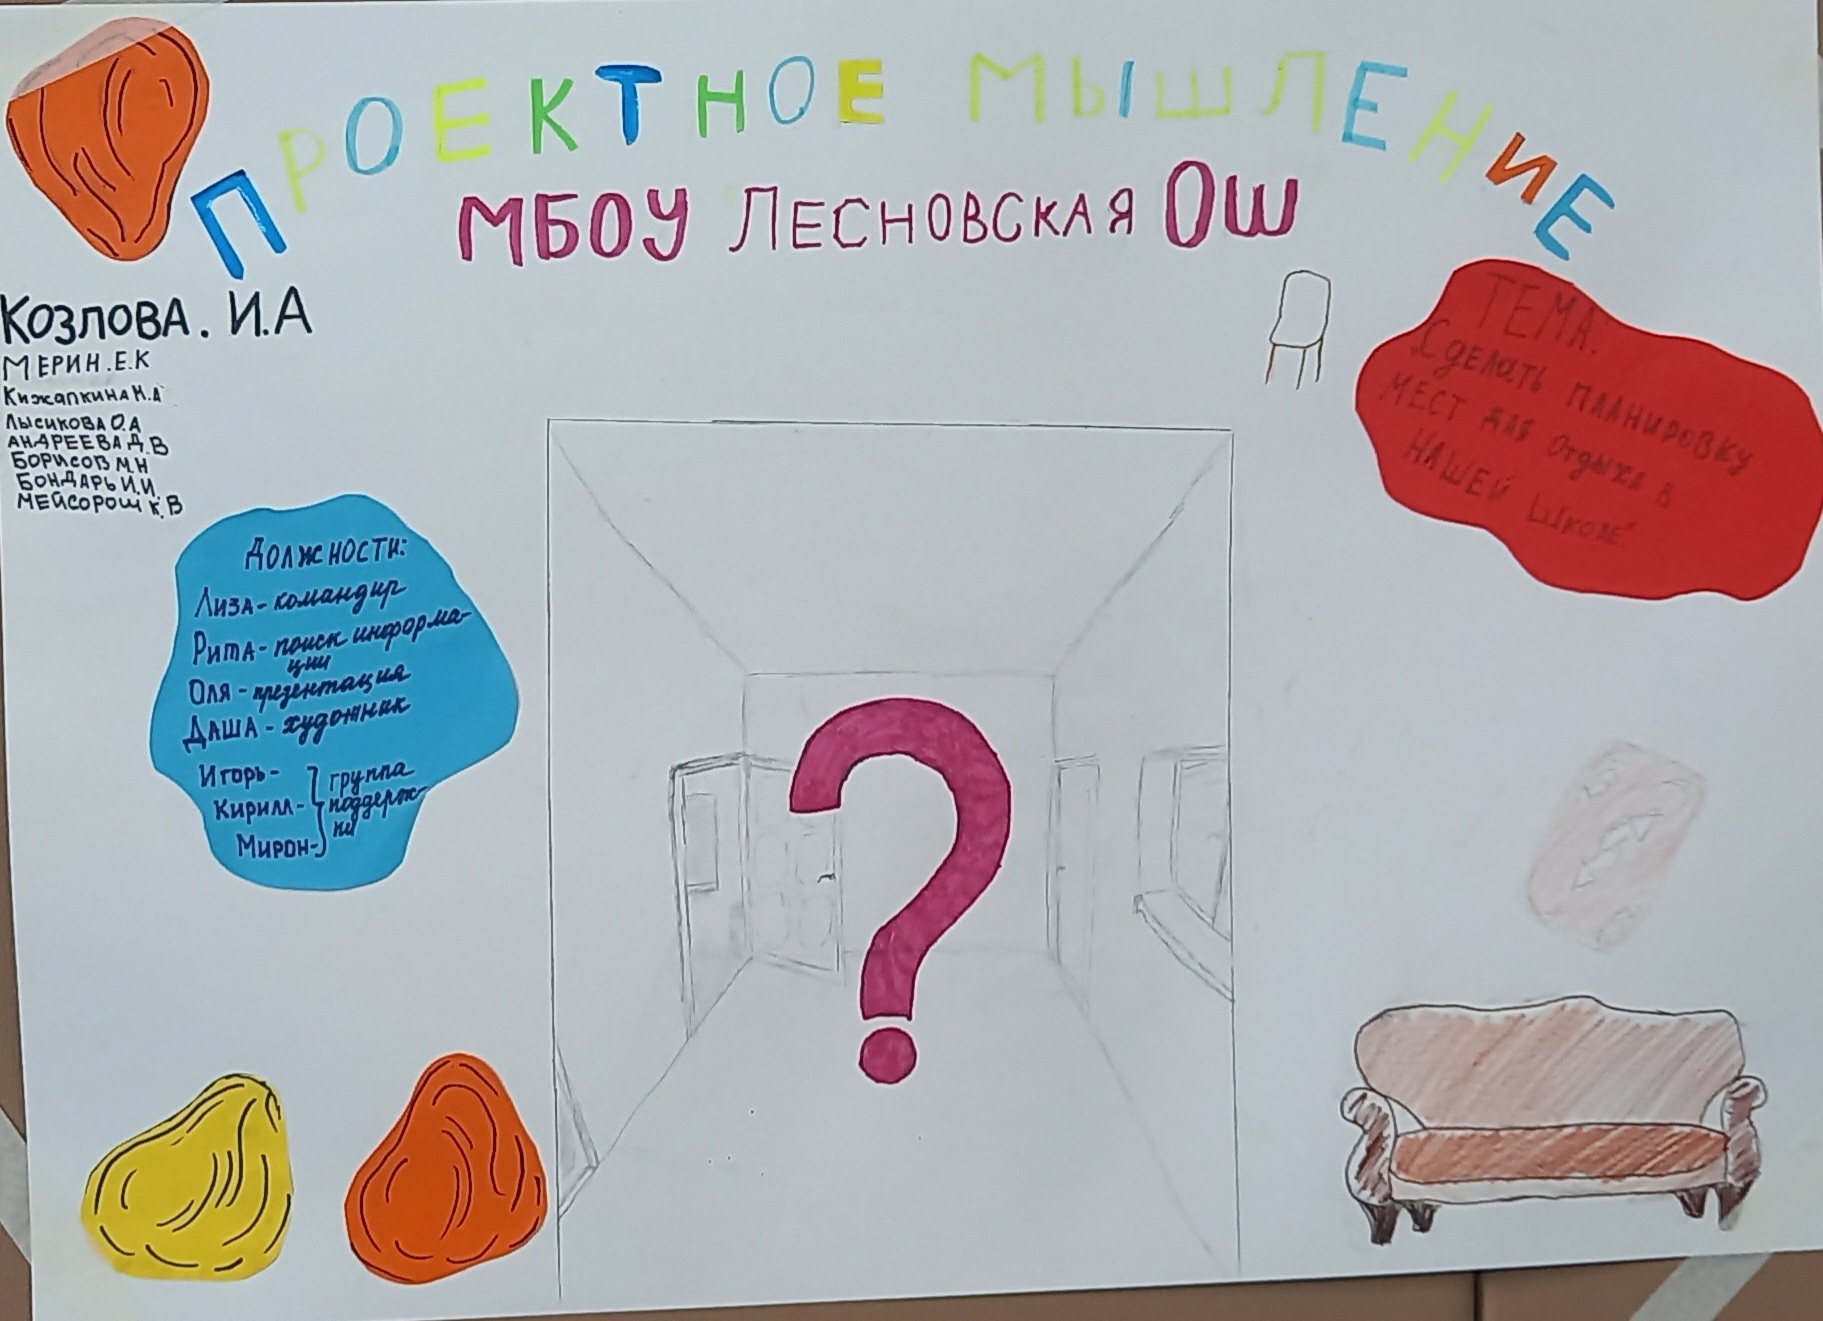 ПРОЕКТНОЕ МЫШЛЕНИЕ
МБОУ ЛЕСНОВСКАЯ ОШ
КОЗЛОВА. И.А
МЕРИН.Е.К
КижапкинаМ.А
ЛысиковаО.А
АНДРЕЕВАД.В
БОРИСОВ М.Н
БОНДАРЬ И.И.
МЕЙСОРОШ К.В
ТЕМА.
„Сделать планировку
мест для отдыха в
нашей школе"
Должности:
Лиза - командир
Рита - поиск информа-
ции
Оля - презентация
Даша - художник
Игорь - группа
Кирилл - поддерж-
ки
Мирон -